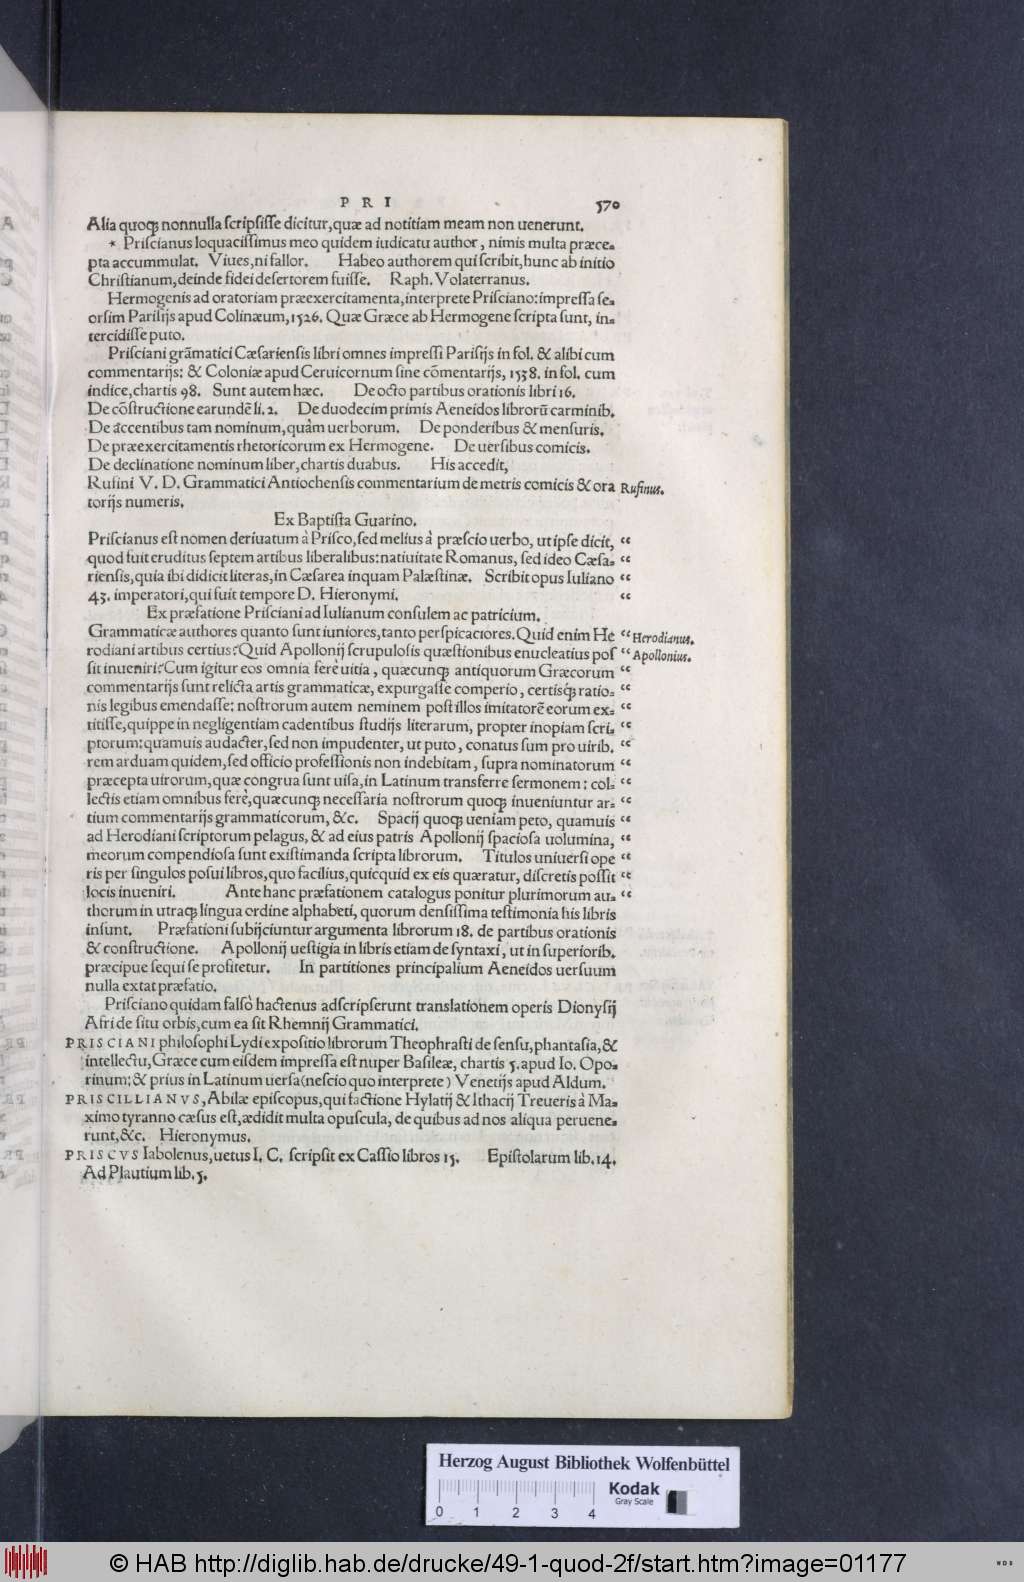 P R I 570
Alia quoq; nonnulla scripsisse dicitur, quæ ad notitiam meam non uenerunt.
* Priscianus loquacissimus meo quidem iudicatu author, nimis multa præce-
pta accummulat. Viues, ni fallor. Habeo authorem qui scribit, hunc ab initio
Christianum, deinde fidei desertorem fuisse. Raph. Volaterranus.
Hermogenis ad oratoriam præexercitamenta, interprete Prisciano: impressa se-
orsim Parisijs apud Colinæum, 1526. Quæ Græce ab Hermogene scripta sunt, in-
tercidisse puto.
Prisciani grãmatici Cæsariensis libri omnes impressi Parisijs in fol. & alibi cum
commentarijs: & Coloniæ apud Ceruicornum sine cõmentarijs, 1538. in fol. cum
indice, chartis 98. Sunt autem hæc. De octo partibus orationis libri 16.
De cõstructione earundẽ li. 2. De duodecim primis Aeneidos librorũ carminib.
De accentibus tam nominum, quàm uerborum. De ponderibus & mensuris.
De præexercitamentis rhetoricorum ex Hermogene. De uersibus comicis.
De declinatione nominum liber, chartis duabus. His accedit,
Rufini V. D. Grammatici Antiochensis commentarium de metris comicis & ora Rufinus.
torijs numeris.
Ex Baptista Guarino.
Priscianus est nomen deriuatum à Prisco, sed melius à præscio uerbo, ut ipse dicit, “
quod fuit eruditus septem artibus liberalibus: natiuitate Romanus, sed ideo Cæsa- “
riensis, quia ibi didicit literas, in Cæsarea inquam Palæstinæ. Scribit opus Iuliano “
43. imperatori, qui fuit tempore D. Hieronymi. “
Ex præfatione Prisciani ad Iulianum consulem ac patricium.
Grammaticæ authores quanto sunt iuniores, tanto perspicaciores. Quid enim He “ Herodianus.
rodiani artibus certius? Quid Apollonij scrupulosis quæstionibus enucleatius pos “ Apollonius.
sit inueniri? Cum igitur eos omnia ferè uitia, quæcunq; antiquorum Græcorum “
commentarijs sunt relicta artis grammaticæ, expurgasse comperio, certisq́; ratio- “
nis legibus emendasse: nostrorum autem neminem post illos imitatorẽ eorum ex- “
titisse, quippe in negligentiam cadentibus studijs literarum, propter inopiam scri- “
ptorum: quamuis audacter, sed non impudenter, ut puto, conatus sum pro uirib. “
rem arduam quidem, sed officio professionis non indebitam, supra nominatorum “
præcepta uirorum, quæ congrua sunt uisa, in Latinum transferre sermonem: col- “
lectis etiam omnibus ferè, quæcunq; necessaria nostrorum quoq; inueniuntur ar- “
tium commentarijs grammaticorum, &c. Spacij quoq; ueniam peto, quamuis “
ad Herodiani scriptorum pelagus, & ad eius patris Apollonij spaciosa uolumina, “
meorum compendiosa sunt existimanda scripta librorum. Titulos uniuersi ope “
ris per singulos posui libros, quo facilius, quicquid ex eis quæratur, discretis possit “
locis inueniri. Ante hanc præfationem catalogus ponitur plurimorum au- “
thorum in utraq; lingua ordine alphabeti, quorum densissima testimonia his libris
insunt. Præfationi subijciuntur argumenta librorum 18. de partibus orationis
& constructione. Apollonij uestigia in libris etiam de syntaxi, ut in superiorib.
præcipue sequi se profitetur. In partitiones principalium Aeneidos uersuum
nulla extat præfatio.
Prisciano quidam falsò hactenus adscripserunt translationem operis Dionysij
Afri de situ orbis, cum ea sit Rhemnij Grammatici.
PRISCIANI philosophi Lydi expositio librorum Theophrasti de sensu, phantasia, &
intellectu, Græce cum eisdem impressa est nuper Basileæ, chartis 5. apud Io. Opo-
rinum: & prius in Latinum uersa (nescio quo interprete) Venetijs apud Aldum.
PRISCILLIANVS, Abilæ episcopus, qui factione Hylatij & Ithacij Treueris à Ma-
ximo tyranno cæsus est, ædidit multa opuscula, de quibus ad nos aliqua peruene-
runt, &c. Hieronymus.
PRISCVS Iabolenus, uetus I. C. scripsit ex Cassio libros 15. Epistolarum lib. 14.
Ad Plautium lib. 5.
Herzog August Bibliothek Wolfenbüttel
0 1 2 3 4
Kodak
Gray Scale
© HAB http://diglib.hab.de/drucke/49-1-quod-2f/start.htm?image=01177